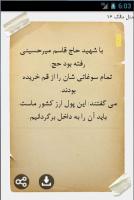 8:03
مدل مالک ۱۶
با شهید حاج قاسم میرحسینی
رفته بود حج
تمام سوغاتی شان را از قم خریده
بودند
می گفتند: این پول ارز کشور ماست
باید آن را به داخل برگردانیم